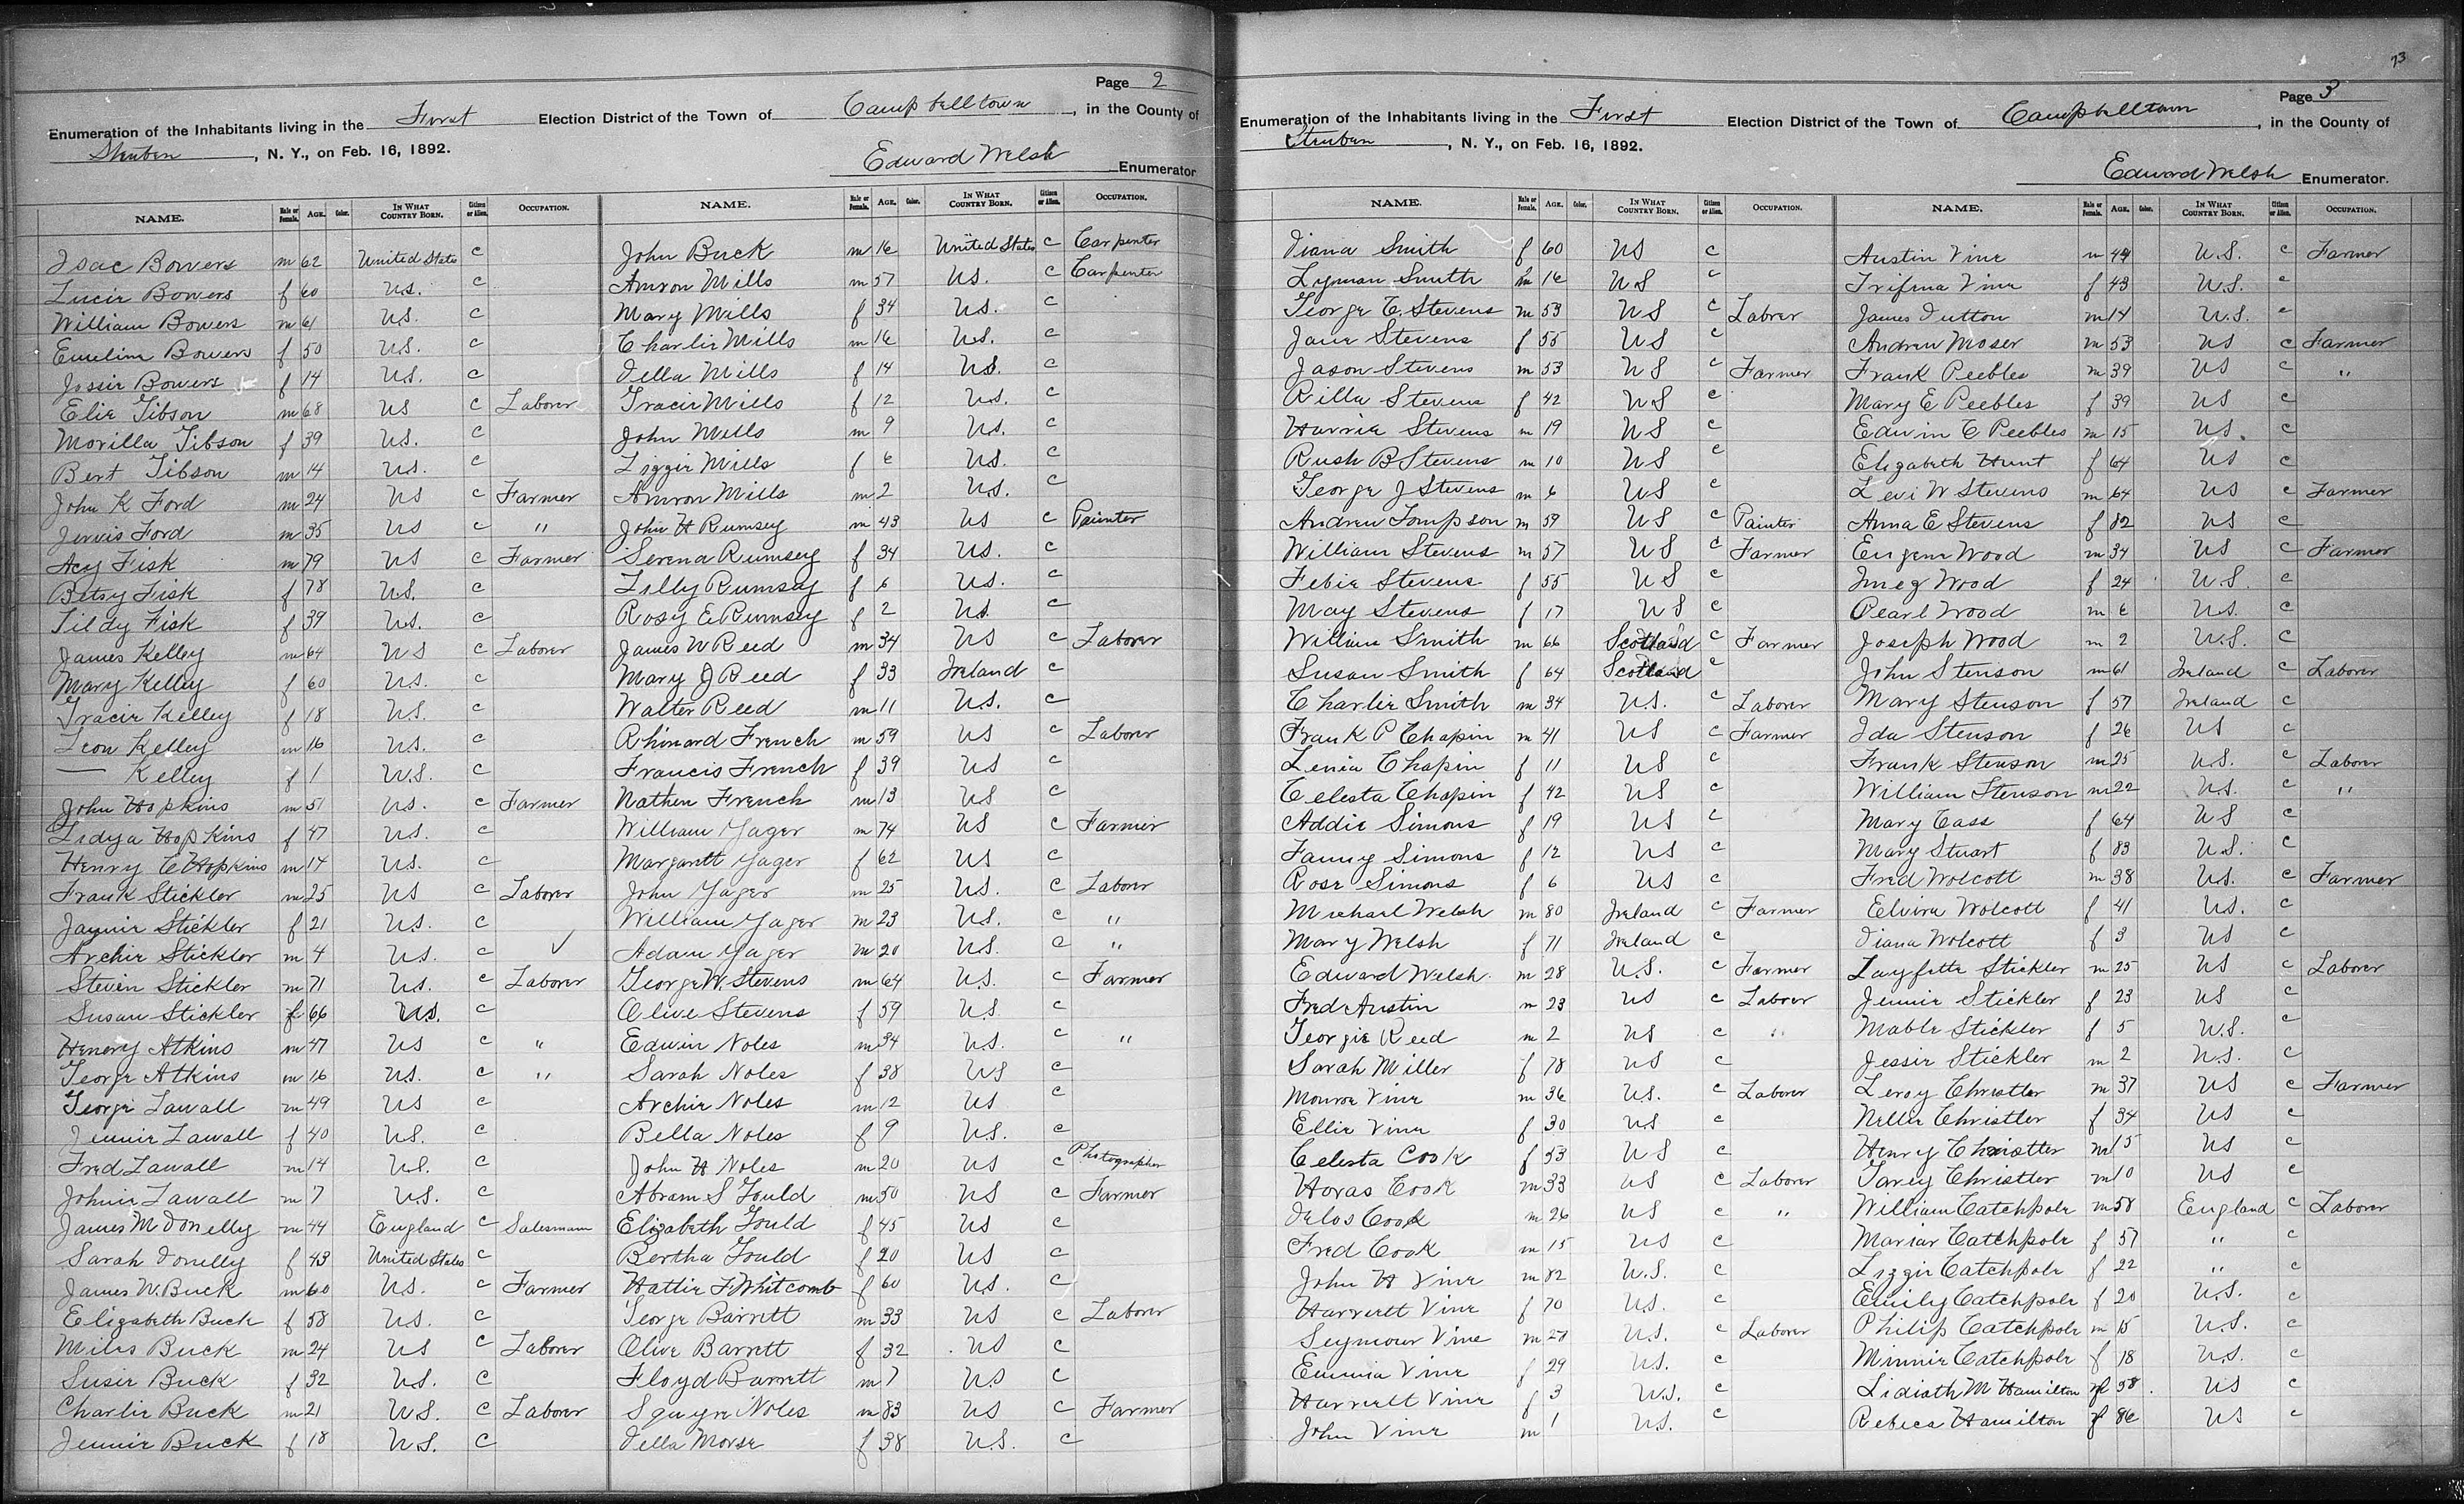 Page 2
Enumeration of the Inhabitants living in the First Election District of the Town of Campbelltown, in the County of
Steuben, N. Y., on Feb. 16, 1892.
Edward Welsh Enumerator
NAME. Male or Female. AGE. Color. IN WHAT COUNTRY BORN. Citizen or Alien. OCCUPATION.
Isac Bowers m 62 United States c
Lucie Bowers f 60 U.S. c
William Bowers m 61 U.S. c
Emeline Bowers f 50 U.S. c
Jossie Bowers f 14 U.S. c
Elie Gibson m 68 US c Laborer
Morilla Gibson f 39 U.S. c
Bert Gibson m 14 U.S. c
John K Ford m 24 US c Farmer
Jervis Ford m 35 US c "
Acy Fisk m 79 US c Farmer
Betsy Fisk f 78 U.S. c
Tildy Fisk f 39 U.S. c
James Kelley m 64 US c Laborer
Mary Kelley f 60 U.S. c
Gracie Kelley f 18 U.S. c
Leon Kelley m 16 U.S. c
— Kelley f 1 U.S. c
John Hopkins m 51 U.S. c Farmer
Lidya Hopkins f 47 U.S. c
Henry C Hopkins m 14 U.S. c
Frank Stickler m 25 US c Laborer
Jaynie Stickler f 21 U.S. c
Archie Stickler m 4 U.S. c ✓
Steven Stickler m 71 U.S. c Laborer
Susan Stickler f 66 U.S. c
Henery Atkins m 47 US c "
George Atkins m 16 U.S. c "
George Lawall m 49 US c
Jennie Lawall f 40 U.S. c
Fred Lawall m 14 U.S. c
Johnie Lawall m 7 U.S. c
James M Donelly m 44 England c Salesmam
Sarah Donelly f 43 United States c
James W. Buck m 60 U.S. c Farmer
Elizabeth Buck f 58 U.S. c
Miles Buck m 24 US c Laborer
Susie Buck f 32 U.S. c
Charlie Buck m 21 U.S. c Laborer
Jennie Buck f 18 U.S. c
NAME. Male or Female. AGE. Color. IN WHAT COUNTRY BORN. Citizen or Alien. OCCUPATION.
John Buck m 16 United States c Carpenter
Amron Mills m 57 U.S. c Carpenter
Mary Mills f 34 U.S. c
Charlie Mills m 16 U.S. c
Della Mills f 14 U.S. c
Gracie Mills f 12 U.S. c
John Mills m 9 U.S. c
Lizzie Mills f 6 U.S. c
Amron Mills m 2 U.S. c
John H Rumsey m 43 US c Painter
Serena Rumsey f 34 U.S. c
Lilly Rumsey f 6 U.S. c
Rosy E Rumsey f 2 U.S. c
James W Reed m 34 US c Laborer
Mary J Reed f 33 Ireland c
Walter Reed m 11 U.S. c
Rhinard French m 59 US c Laborer
Francis French f 39 US c
Nathen French m 13 US c
William Yager m 74 US c Farmer
Margarett Yager f 62 US c
John Yager m 25 U.S. c Laborer
William Yager m 23 U.S. c "
Adam Yager m 20 U.S. c "
George W. Stevens m 64 U.S. c Farmer
Olive Stevens f 59 U.S. c
Edwin Noles m 34 U.S. c "
Sarah Noles f 38 US c
Archie Noles m 12 US c
Bella Noles f 9 U.S. c
John H Noles m 20 US c Photographer
Abram S Gould m 50 US c Farmer
Elizabeth Gould f 45 US c
Bertha Gould f 20 US c
Hattie F Whitcomb f 60 U.S. c
George Barrett m 33 US c Laborer
Olive Barrett f 32 US c
Floyd Barrett m 7 U.S c
Squyre Noles m 83 US c Farmer
Della Morse f 38 U.S. c
73
Page 3
Enumeration of the Inhabitants living in the First Election District of the Town of Campbelltown, in the County of
Steuben, N. Y., on Feb. 16, 1892.
Edward Welsh Enumerator.
NAME. Male or Female. AGE. Color. IN WHAT COUNTRY BORN. Citizen or Alien. OCCUPATION.
Diana Smith f 60 US c
Lyman Smith m 16 US c
George C. Stevens m 53 US c Labrer
Jane Stevens f 55 US c
Jason Stevens m 53 US c Farmer
Rilla Stevens f 42 US c
Harrie Stevens m 19 US c
Rush B Stevens m 10 US c
George J Stevens m 6 US c
Andrew Tompson m 59 US c Painter
William Stevens m 57 US c Farmer
Febie Stevens f 55 US c
May Stevens f 17 US c
William Smith m 66 Scotland c Farmer
Susan Smith f 64 Scotland c
Charlie Smith m 34 U.S. c Laborer
Frank P Chapin m 41 US c Farmer
Lenia Chapin f 11 US c
Celesta Chapin f 42 US c
Addie Simons f 19 US c
Fanny Simons f 12 US c
Rose Simons f 6 US c
Michael Welsh m 80 Ireland c Farmer
Mary Welsh f 71 Ireland c
Edward Welsh m 28 U.S. c Farmer
Fred Austin m 23 US c Labrer
Georgie Reed m 2 US c "
Sarah Miller f 78 US c
Monroe Vine m 36 U.S. c Laborer
Ellie Vine f 30 US c
Celesta Cook f 53 US c
Horas Cook m 33 US c Laborer
Delos Cook m 26 US c "
Fred Cook m 15 US c
John H Vine m 82 U.S. c
Harriett Vine f 70 U.S. c
Seymour Vine m 27 U.S. c Laborer
Emmia Vine f 29 U.S. c
Harriett Vine f 3 U.S. c
John Vine m 1 U.S. c
NAME. Male or Female. AGE. Color. IN WHAT COUNTRY BORN. Citizen or Alien. OCCUPATION.
Austin Vine m 44 U.S. c Farmer
Trifena Vine f 43 U.S. c
James Dutton m 14 U.S. c
Andrew Moser m 53 US c Farmer
Frank Peebles m 39 US c "
Mary E Peebles f 39 US c
Edwin C Peebles m 15 US. c
Elizabeth Hunt f 64 US c
Levi W Stevens m 64 US c Farmer
Anna E Stevens f 82 US c
Eugene Wood m 34 US c Farmer
Imeg Wood f 24 U.S c
Pearl Wood m 6 U.S. c
Joseph Wood m 2 U.S. c
John Stenson m 61 Ireland c Laborer
Mary Stenson f 57 Ireland c
Ida Stenson f 26 US c
Frank Stenson m 25 U.S. c Laborer
William Stenson m 22 U.S. c "
Mary Cass f 64 US c
Mary Stuart f 83 U.S. c
Fred Wolcott m 38 U.S. c Farmer
Elvira Wolcott f 41 U.S. c
Diana Wolcott f 3 US c
Layfette Stickler m 25 US c Laborer
Jennie Stickler f 23 US c
Mable Stickler f 5 U.S. c
Jessie Stickler m 2 U.S. c
Leroy Christler m 37 US c Farmer
Nellie Christler f 34 US c
Henry Christler m 15 US c
Garey Christler m 10 US c
William Catchpole m 58 England c Laborer
Mariar Catchpole f 57 " c
Lizzie Catchpole f 22 " c
Emily Catchpole f 20 U.S. c
Philip Catchpole m 15 U.S. c
Minnie Catchpole f 18 U.S. c
Lidiath M Hamilton f 58 US c
Rebeca Hamilton f 86 US c